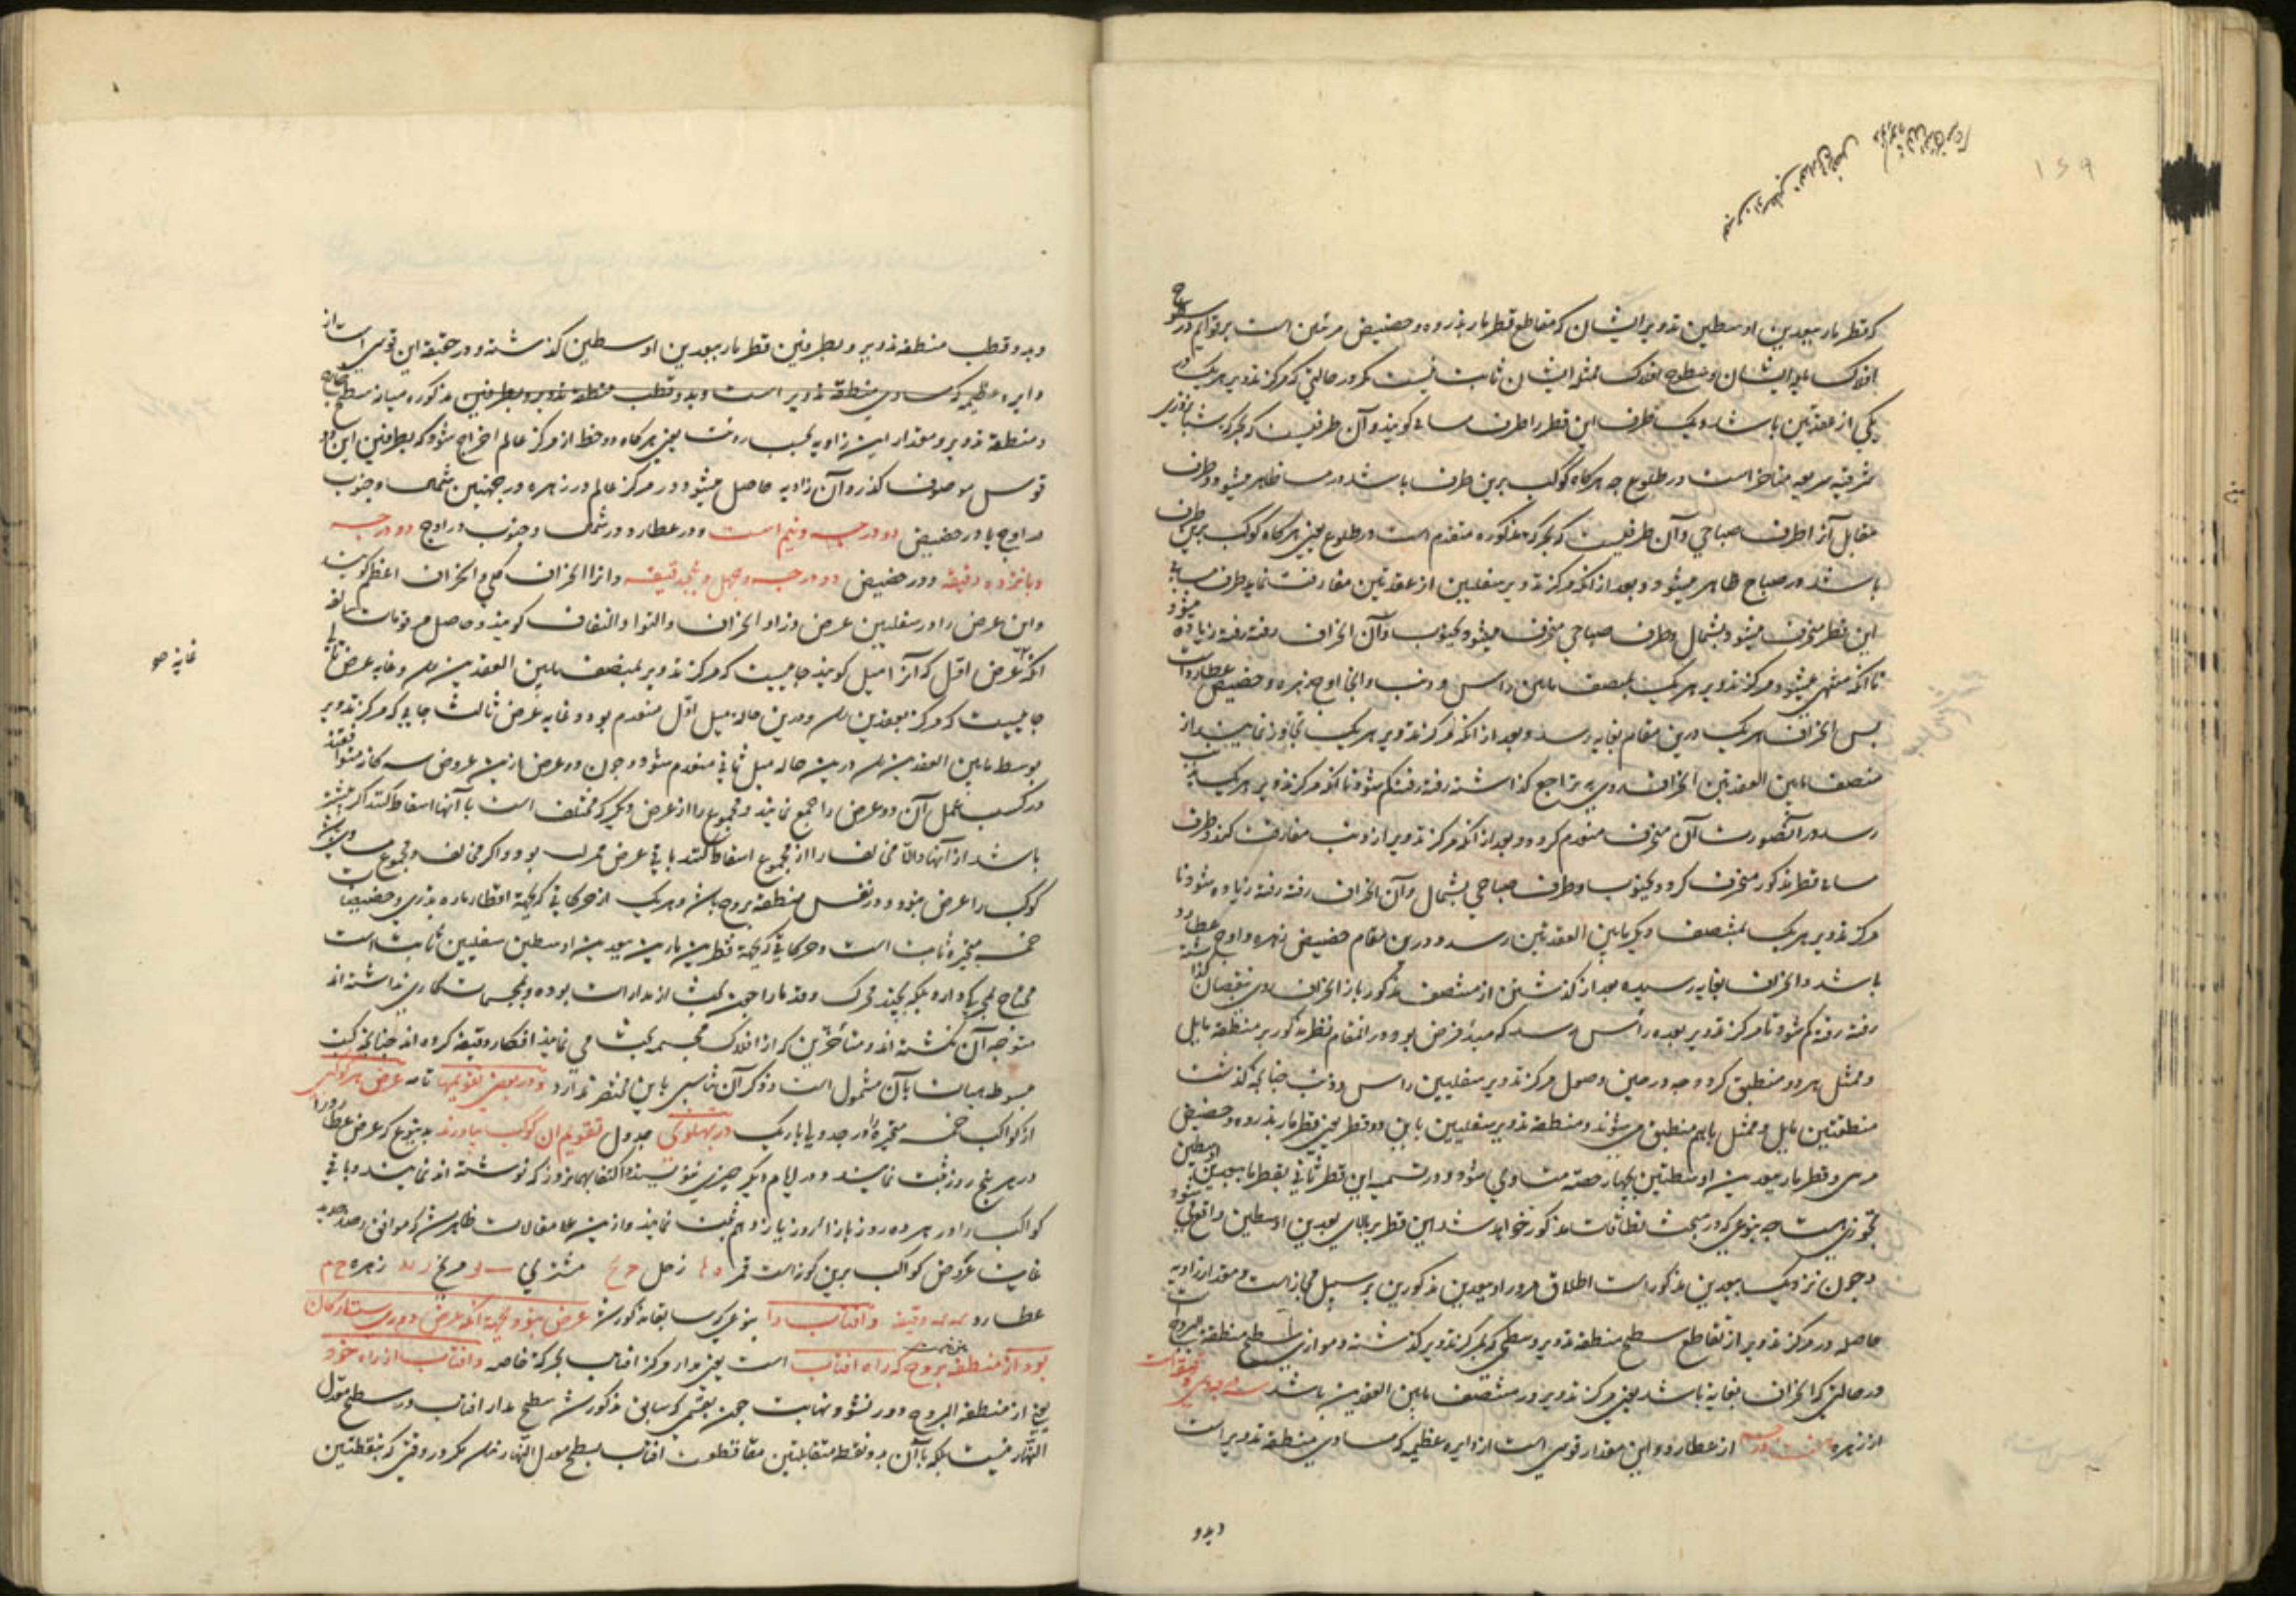 ۱۶۹
که قطر مار ببعدین اوسطین تدویر ایشان که مقاطع قطر مار بذروه و حضیض مرئین است بر قوایم در سطوح
افلاک مایله ایشان و سطوح افلاک ممثله ایشان ثابت نیست مکر در حالتی که مرکز تدویر هر یک در
یکی از عقدتین باشد و یک طرف این قطر را طرف مسائی کویند و آن طرفیست که بحرکت شبانروزی
شرقیه سریعه متاخر است در طلوع چه هرکاه کوکب برین طرف باشد در مسا ظاهر میشود و طرف
مقابل آنرا طرف صباحی و آن طرفیست که بحرکه مذکوره متقدم است در طلوع یعنی هرکاه کوکب برین طرف
باشد در صباح ظاهر میشود و بعد از انکه مرکز تدویر سفلیین از عقدتین مفارقت نماید طرف مسائی
این قطر منحرف میشود بشمال و طرف صباحی منحرف میشود بجنوب و آن انحراف رفته رفته زیاده میشود
تا انکه منتهی میشود مرکز تدویر هر یک بمنتصف مابین راس و ذنب و انجا اوج زهره و حضیض عطارد است
پس انحراف هر یک درین مقام بغایه رسد و بعد از انکه مرکز تدویر هر یک تجاوز نماید از
منتصف مابین العقدتین انحراف روی بتراجع کذاشته رفته رفته کم شود تا انکه مرکز تدویر هر یک بذنب
رسد در آنصورت آن منحرف منعدم کردد و بعد از انکه مرکز تدویر از ذنب مفارقت کند طرف
مسائی قطر مذکور منحرف کردد بجنوب و طرف صباحی بشمال و آن انحراف رفته رفته زیاده شود تا
مرکز تدویر هر یک بمنتصف دیکر مابین العقدتین رسد و درین مقام حضیض زهره و اوج عطارد
باشد و انحراف بغایه رسیده بعد از کذشتن از منتصف مذکور باز انحراف روی بنقصان کذاشته
رفته رفته کم شود تا مرکز تدویر بعقده راس رسد که مبدأ فرض بود و در انمقام قطر مذکور بر منطقه مایل
و ممثل هر دو منطبق کردد چه در حین وصول مرکز تدویر سفلیین براس و ذنب چنانچه کذشت
منطقتین مایل و ممثل باهم منطبق می‌شوند و منطقه تدویر سفلیین باین دو قطر یعنی قطر مار بذروه و حضیض
مرئی و قطر مار ببعدین اوسطین بچهار حصه متساوی شود و در تسمیه این قطر ثانی بقطر مار ببعدین اوسطین
تجوزی است چه بنوعی که در مبحث نطاقات مذکور خواهد شد این قطر بر بالای بعدین اوسطین واقع میشود
و چون نزدیک ببعدین مذکور است اطلاق مرور او ببعدین مذکورین بر سبیل مجاز است و مقدار زاویه
حاصله در مرکز تدویر از تقاطع سطح منطقه تدویر و سطحی که بمرکز تدویر کذشته و موازی سطح منطقه البروج است
در حالتی که انحراف بغایه باشد یعنی مرکز تدویر در منتصف مابین العقدتین باشد
از زهره هفت درجه از عطارد و این مقدار قوسی است از دایره عظیمه که مساوی منطقه تدویر است
و بدو
و بدو قطب منطقه تدویر و بطرفین قطر مار ببعدین اوسطین کذشته و در حقیقه این قوسی است از
دایره عظیمه که مساوی منطقه تدویر است و بدو قطب منطقه تدویر و بطرفین مذکوره میانه سطح
و منطقه تدویر و مقدار این زاویه بحسب رویت یعنی هرکاه دو خط از مرکز عالم اخراج شود که بطرفین این دو
قوس موصوف کذرد آن زاویه حاصل میشود در مرکز عالم در زهره در جهتین شمال و جنوب
در اوج یا در حضیض دو درجه و نیم است و در عطارد در شمال و جنوب در اوج دو درجه
و پانزده دقیقه و در حضیض دو درجه و چهل و پنج دقیقه و انرا انحراف کلی و انحراف اعظم کویند
و این عرض را در سفلیین عرض وراب و انحراف و التوا و التفاف کویند و حاصل مرقومات سالفه
انکه عرض اول که آنرا میل کویند جاییست که مرکز تدویر بمنتصف مابین العقدتین رسد و غایه عرض ثانی
غایة صح
جاییست که مرکز بعقدتین رسد و درین حاله میل اول منعدم بود و غایه عرض ثالث جایی که مرکز تدویر
بوسط مابین العقدتین رسد درین حاله میل ثانی منعدم شود و چون دو عرض ازین عروض سه کانه متوافقند
در کسب عمل آن دو عرض را جمع نمایند و مجموع را از عرض دیکر که مختلف است با آنها اسقاط کنند اکر بیشتر
باشد از آنها و الا مخالف را از مجموع اسقاط کنند باقی عرض مدرک بود و اکر مخالف و مجموع مساوی باشند
کوکب را عرض نبود و در نفس منطقه بروج باشد و هر یک از حرکاتی که بجهة اقطار ماره بذری و حضیضات
خمسه متحیره ثابت است و حرکاتی که بجهة قطرین مارین ببعدین اوسطین سفلیین ثابت است
محتاج بمحرکی دارد بلکه بچند محرک و قدما را چون بحث از مدارات بوده و بمجسمات کاری نداشته‌اند
متوجه آن نکشته‌اند و متاخرین که از افلاک مجسمه بحث می نمایند افکار دقیقه کرده‌اند چنانچه کتب
مبسوطه هیات بآن مشمول است و ذکر آن تناسبی باین مختصر ندارد و در بعضی تقویمها تامه عرض هر کوکبی
از کواکب خمسه متحیره را در جدولها باریک در پهلوی جدول تقویم آن کوکب بیاورند بدینوع که عرض عطارد را
در هر پنج روز ثبت نمایند و در ایام دیکر چیزی ننویسند و اکتفا بهمانروز که نوشته‌اند نمایند و باقی
کواکب را در هر ده روز یازده روز ثبت نمایند و ازین علا مقالات ظاهر شد که موافق رصد جدید
غایت عروض کواکب برین کونه است قمر زحل مشتری مریخ زهره
عطارد دقیقه و آفتاب را بنوعی که سابقا مذکور شد عرض نبود بجهة آنکه عرض دوری ستارکان
بود از منطقه بروج که راه افتاب است یعنی مدار مرکز افتاب بحرکة خاصه و آفتاب از راه خود
یعنی از منطقه البروج دور نشود نهایت چون بقسمی که سابق مذکور شد سطح مدار افتاب در سطح معدل
النهار نیست بلکه با آن بدو نقطه متقابلتین متقاطعست افتاب بسطح معدل النهار نرسد مکر در وقتی که بنقطتین